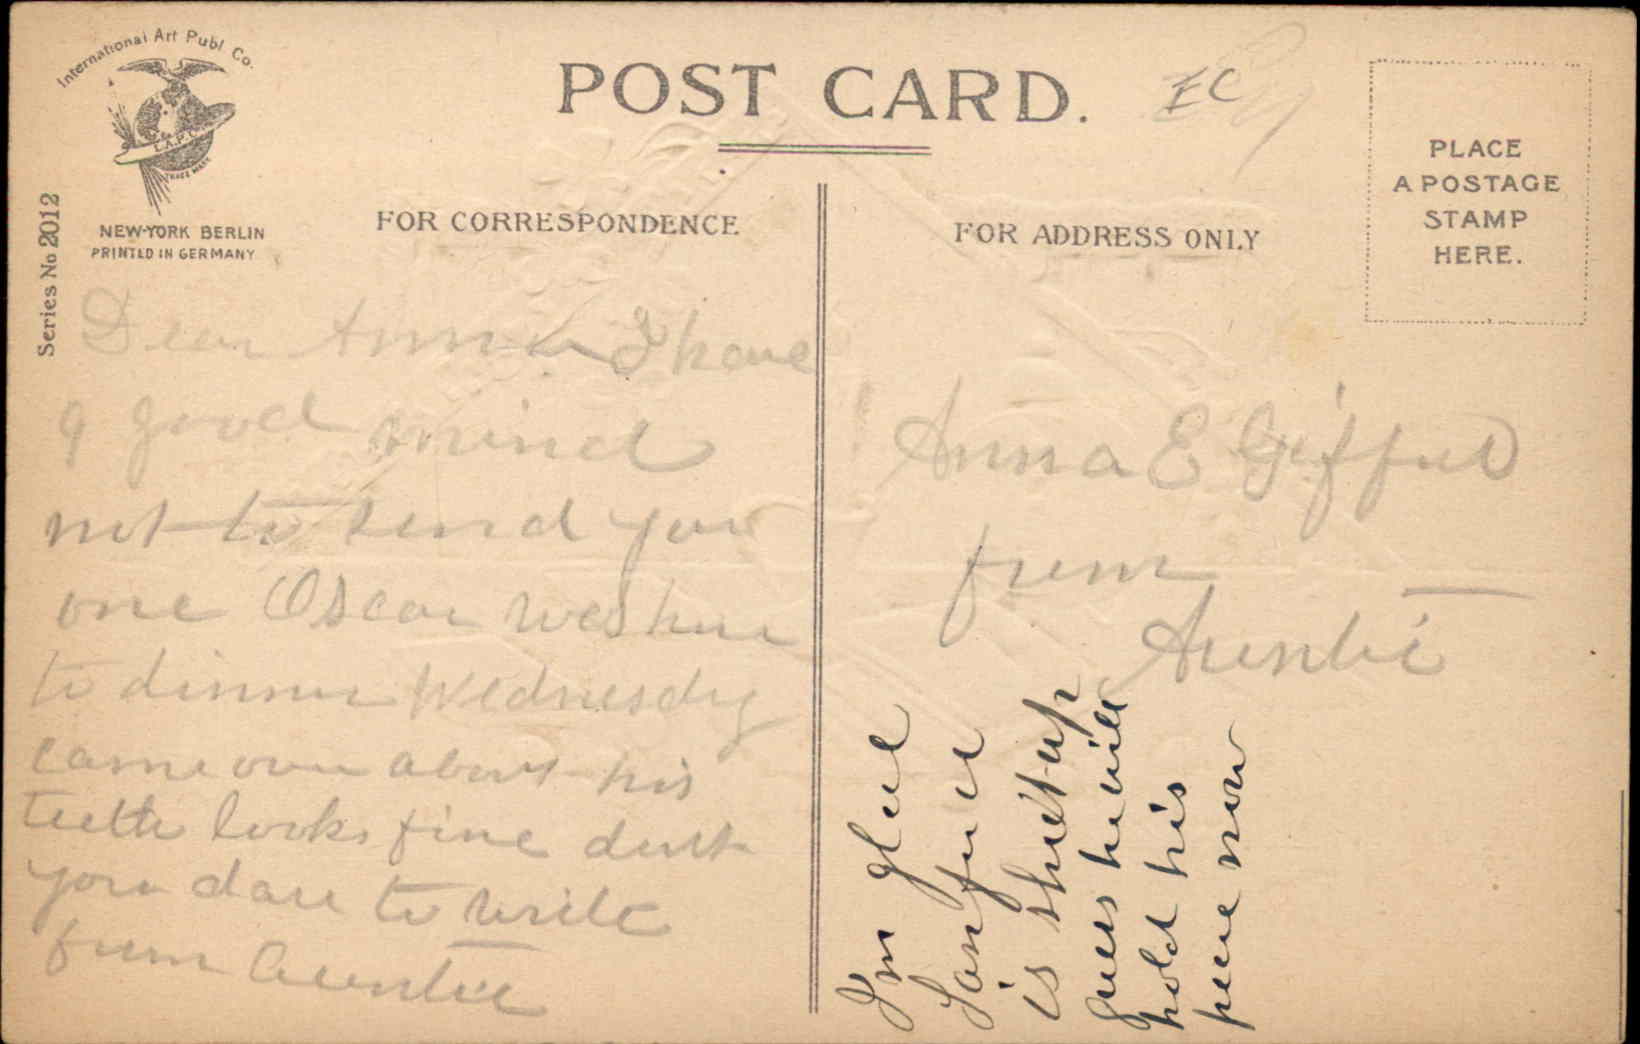 International Art Publ. Co.
I.A.P.C.
TRADE MARK
NEW-YORK BERLIN
PRINTED IN GERMANY
Series No 2012
POST CARD.
EC
FOR CORRESPONDENCE
FOR ADDRESS ONLY
PLACE
A POSTAGE
STAMP
HERE.
Dear Anna I have
a good mind
not to send you
one Oscar was here
to dinner Wednesday
came over about his
teeth looks fine dont
you dare to write
from Auntie
Anna E Gifford
from
Auntie
Im glad
Sanford
is shut up
guess he will
hold his
peace now